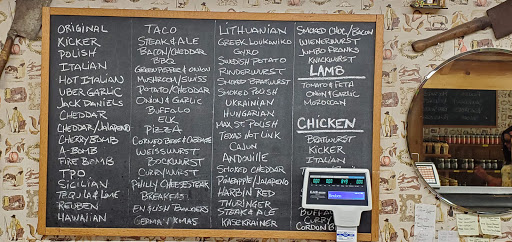 ORIGINAL
KICKER
POLISH
ITALIAN
HOT ITALIAN
UBER GARLIC
JACK DANIELS
CHEDDAR
CHEDDAR/JALAPENO
CHERRY BOMB
A-BOMB
FIRE BOMB
TPO
SICILIAN
TEQUILA & LIME
REUBEN
HAWAIIAN
TACO
STEAK & ALE
BACON/CHEDDAR
BBQ
GREEN PEPPER & ONION
MUSHROOM/SWISS
POTATO/CHEDDAR
ONION & GARLIC
BUFFALO
ELK
PIZZA
CORNED BEEF & CABBAGE
WEISSWURST
BOCKWURST
CURRYWURST
PHILLY CHEESESTEAK
BREAKERS
ENGLISH BANGERS
GERMAN XMAS
LITHUANIAN
GREEK LOUKANIKO
GYRO
SWEDISH POTATO
RINDERWURST
SMOKED BRATWURST
SMOKED POLISH
UKRAINIAN
HUNGARIAN
MAX ST. POLISH
TEXAS HOT LINK
CAJUN
ANDOUILLE
SMOKED CHEDDAR
PINEAPPLE/JALAPENO
HARBIN RED
THURINGER
STEAK & ALE
KASEKRAINER
SMOKED CHED/BACON
WIENERWURST
JUMBO FRANKS
KNACKWURST
LAMB
TOMATO & FETA
ONION & GARLIC
MOROCCAN
CHICKEN
BRATWURST
KICKER
ITALIAN
BUFFALO
CURRY
CORDON B